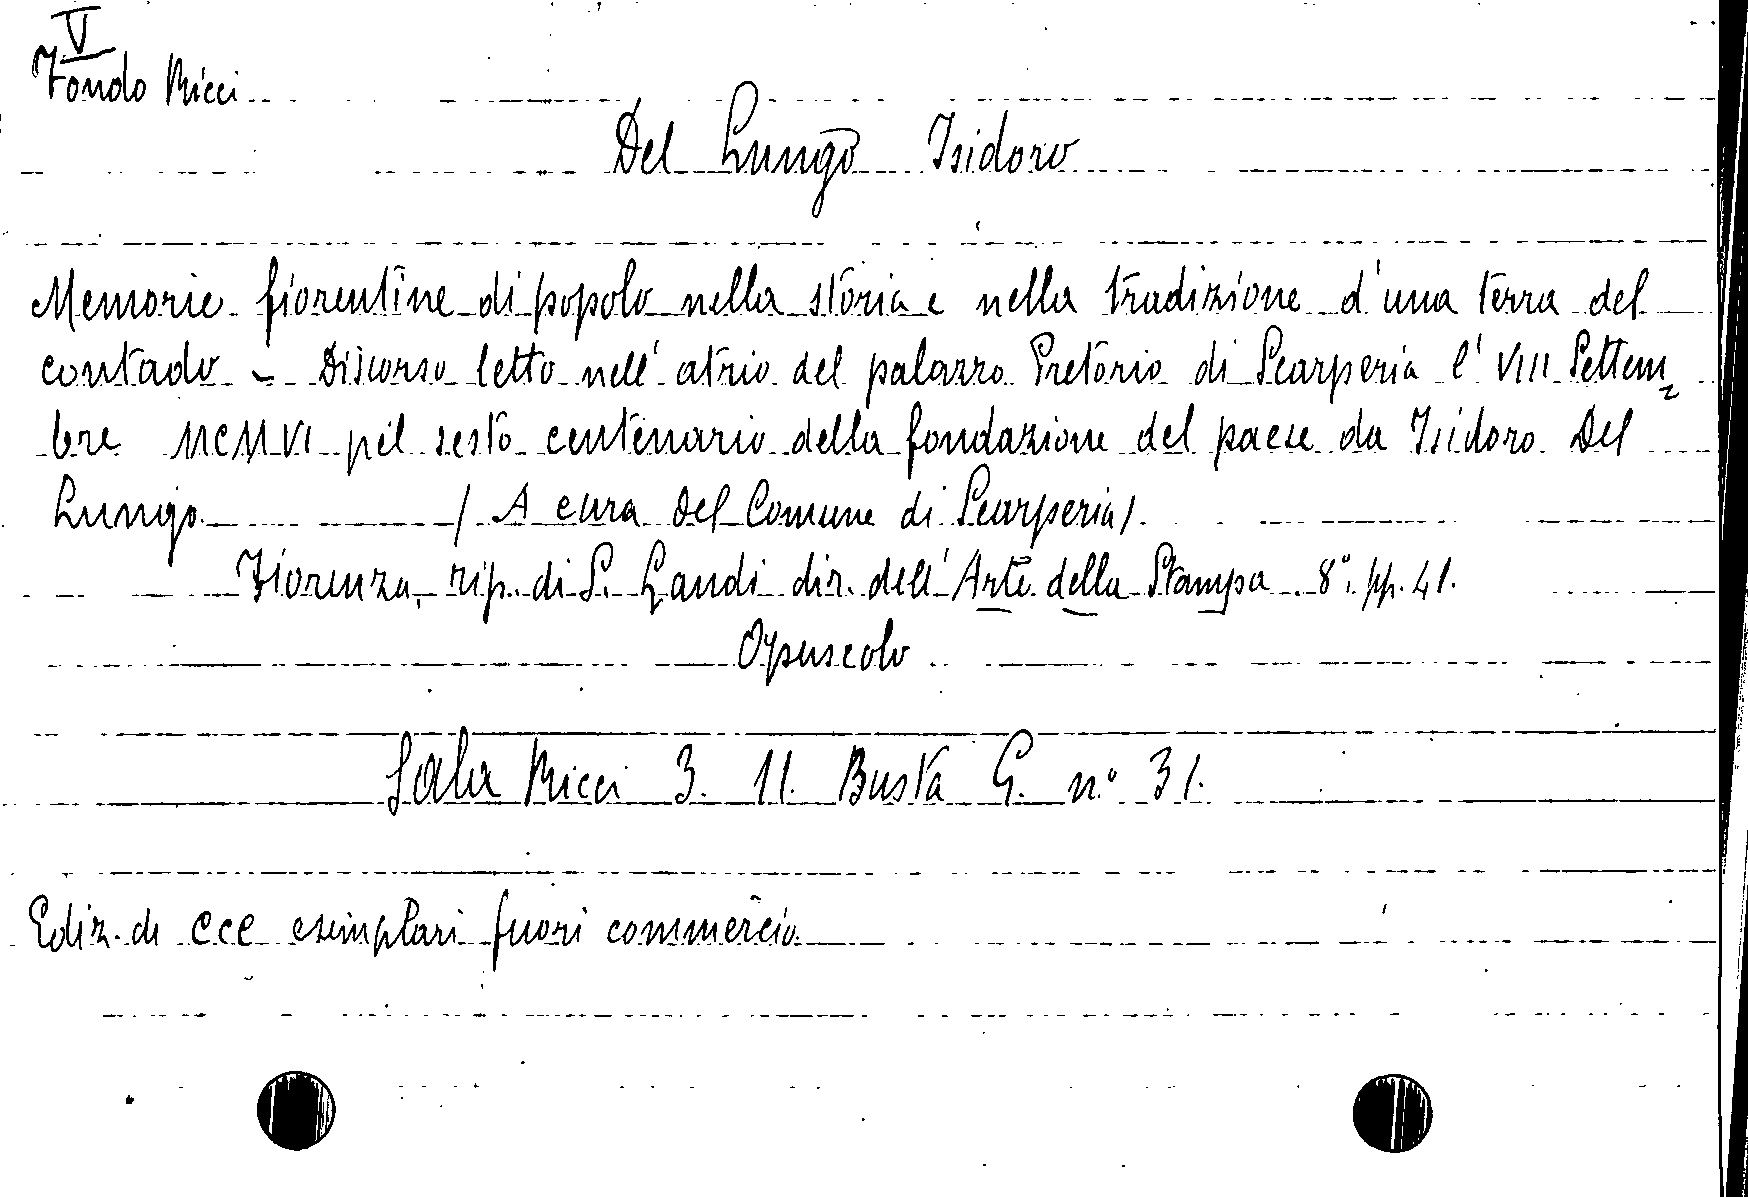 V
Fondo Ricci
Del Lungo Isidoro
Memorie fiorentine di popolo nella storia e nella tradizione d'una terra del
contado - Discorso letto nell'atrio del palazzo Pretorio di Scarperia l'VIII Settem
bre MCMVI pel sesto centenario della fondazione del paese da Isidoro Del
Lungo / A cura del Comune di Scarperia/.
Fiorenza, tip. di S. Landi dir. dell'Arte della Stampa. 8°. pp. 41.
Opuscolo
Sala Ricci 3. 11. Busta G. n° 31.
Ediz. di CCC esemplari fuori commercio.